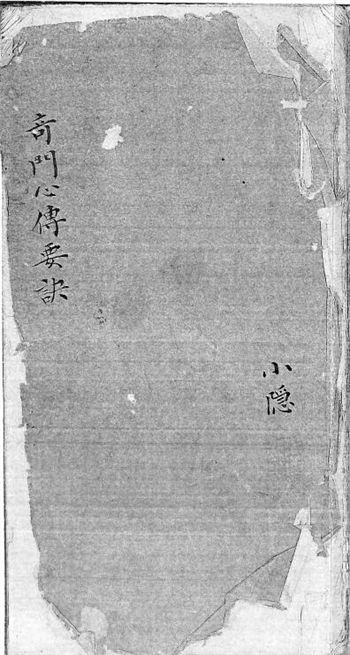 小隠
奇門心傳要訣